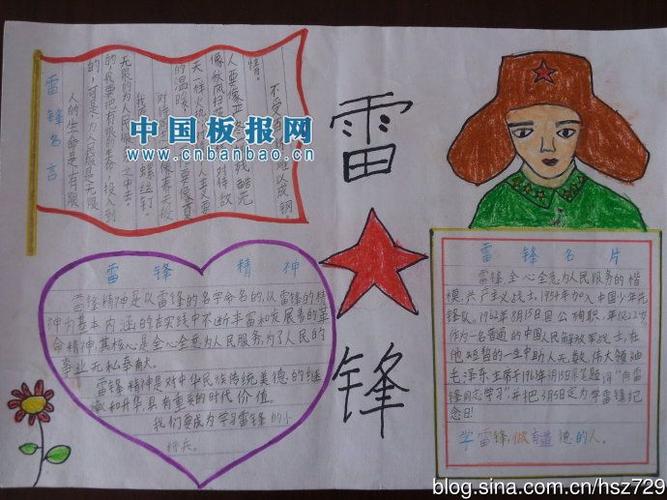 雷锋名言
人的生命是有限
的,可是,为人民服务是无限
的,我要把有限的生命,投入到
无限的为人民服务之中去。
螺丝钉。
对待同志要像春天般
的温暖,
天一样火热
像秋风扫
对待敌
人要像严冬
残酷无
情。
难以成钢。
中国板报网
www.cnbanbao.cn
雷
锋
雷锋精神
雷锋精神是以雷锋的名字命名的,以雷锋的精
神为基本内涵的在实践中不断丰富和发展着的革
命精神,其核心是全心全意为人民服务,为了人民的
事业无私奉献。
雷锋精神是对中华民族传统美德的继
承和升华,具有重要的时代价值。
我们要成为学习雷锋的小
标兵。
雷锋名片
雷锋,全心全意为人民服务的楷
模,共产主义战士,1954年加入中国少年先
锋队,1962年8月15日因公殉职,年仅22岁
作为一名普通的中国人民解放军战士,在
他短暂的一生中助人无数,伟大领袖
毛泽东主席于1963年3月5日亲笔题词"向雷
锋同志学习"并把3月5日定为学雷锋纪
念日!
学雷锋,做有道德的人。
blog.sina.com.cn/hsz729